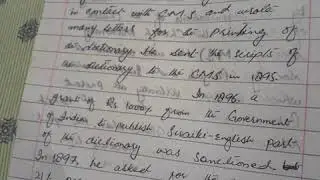 in contact with C.M.S. and wrote
many letters for the printing of
dictionary. He sent the scripts of
dictionary to the C.M.S. in 1895.
In 1896, a
grant of Rs 1000/- from the Government
of India to publish Swaiki-English part
of the dictionary was sanctioned
In 1897, he asked for the